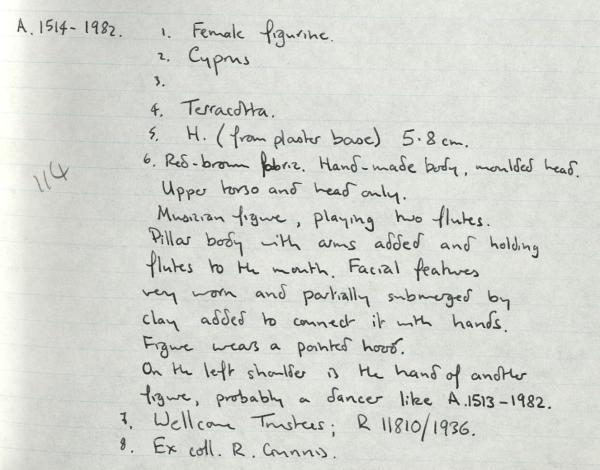 A.1514-1982. 1. Female figurine.
2. Cyprus
3.
4. Terracotta.
5. H. (from plaster base) 5.8 cm.
6. Red-brown fabric. Hand-made body, moulded head.
114
Upper torso and head only.
Musician figure, playing two flutes.
Pillar body with arms added and holding
flutes to the mouth. Facial features
very worn and partially submerged by
clay added to connect it with hands.
Figure wears a pointed hood.
On the left shoulder is the hand of another
figure, probably a dancer like A.1513-1982.
7. Wellcome Trustees; R 11810/1936.
8. Ex coll. R. Gunnis.